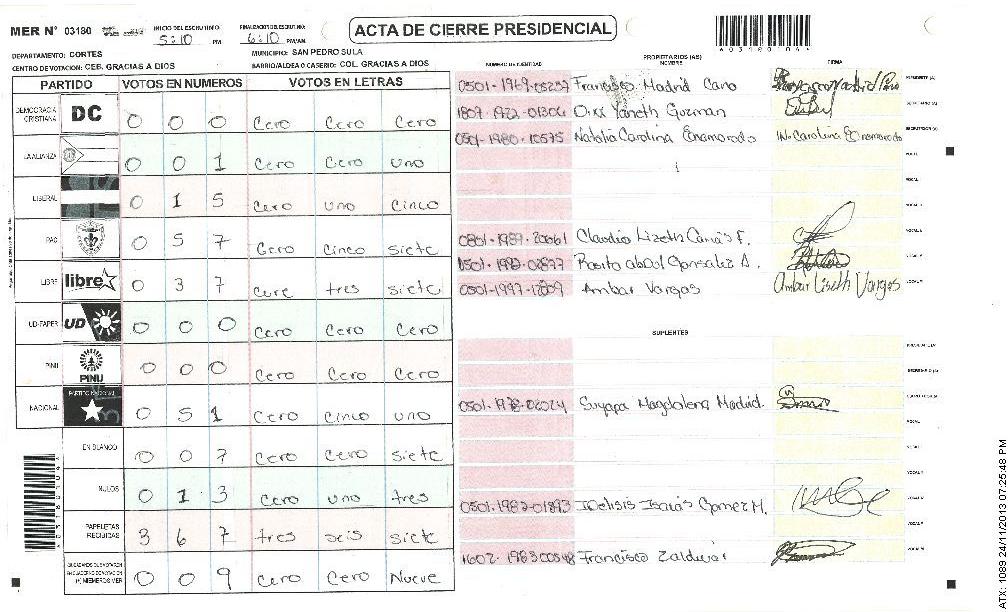 MER N° 03180
INICIO DEL ESCRUTINIO
5:10 PM
FINALIZACION DEL ESCRUTINIO:
6:10 PM/AM
ACTA DE CIERRE PRESIDENCIAL
DEPARTAMENTO: CORTES
MUNICIPIO: SAN PEDRO SULA
CENTRO DE VOTACION: CEB. GRACIAS A DIOS
BARRIO/ALDEA O CASERIO: COL. GRACIAS A DIOS
PARTIDO VOTOS EN NUMEROS VOTOS EN LETRAS
DEMOCRACIA CRISTIANA DC 0 0 0 Cero Cero Cero
LA ALIANZA 0 0 1 Cero Cero uno
LIBERAL 0 1 5 Cero uno Cinco
PAC 0 5 7 Cero Cinco siete
LIBRE libre 0 3 7 Cero tres siete
UD-FAPER UD 0 0 0 Cero Cero Cero
PINU PINU 0 0 0 Cero Cero Cero
NACIONAL PARTIDO NACIONAL 0 5 1 Cero Cinco uno
EN BLANCO 0 0 7 Cero Cero siete
NULOS 0 1 3 Cero uno tres
PAPELETAS RECIBIDAS 3 6 7 tres seis siete
0 0 9 Cero Cero Nueve
NUMERO DE IDENTIDAD
PROPIETARIOS (AS)
NOMBRE
FIRMA
Francisco Madrid Cano
Yaneth Guzman
0501-1980-10575 Natalia Carolina Enamorado
Claudia Lizeth
Gonzalez A.
Ambar Vargas Ambar Liseth Vargas
SUPLENTES
Suyapa Magdalena Madrid.
Isaias Gomez M.
Francisco Zaldivar
ATX: 1089 24/11/2013 07:25:48 PM